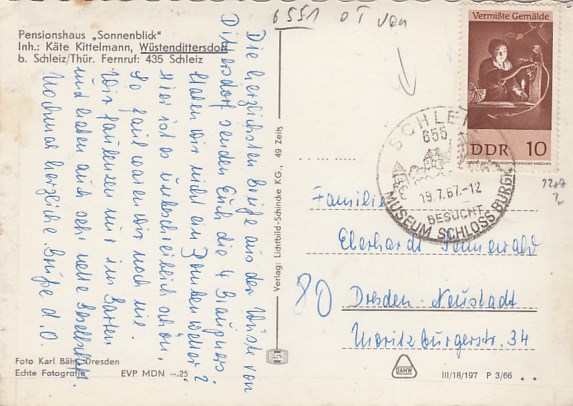 Pensionshaus „Sonnenblick"
Inh.: Käte Kittelmann, Wüstendittersdorf
b. Schleiz/Thür. Fernruf: 435 Schleiz
Die herzlichsten Grüße aus der Wüste von
Dittersdorf senden Euch die 4 Braupners
Haben wir nicht ein Bombenwetter?
Hier ist es unbeschreiblich schön.
So faul waren wir noch nie.
Wir faulenzen nur im Garten
und haben auch sehr nette Gesellschaft.
Nochmals herzliche Grüße d. O.
Foto Karl Bähr, Dresden
Echte Fotografie EVP MDN –.25
Verlag: Lichtbild-Schincke KG., 49 Zeitz
6551 OT von
Vermißte Gemälde
DDR 10
SCHLEIZ
655
19.7.67.-12
BESUCHT
MUSEUM SCHLOSS BURGK
Familie
Eberhardt
80 Dresden-Neustadt
Moritzburgerstr. 34
III/18/197 P 3/66